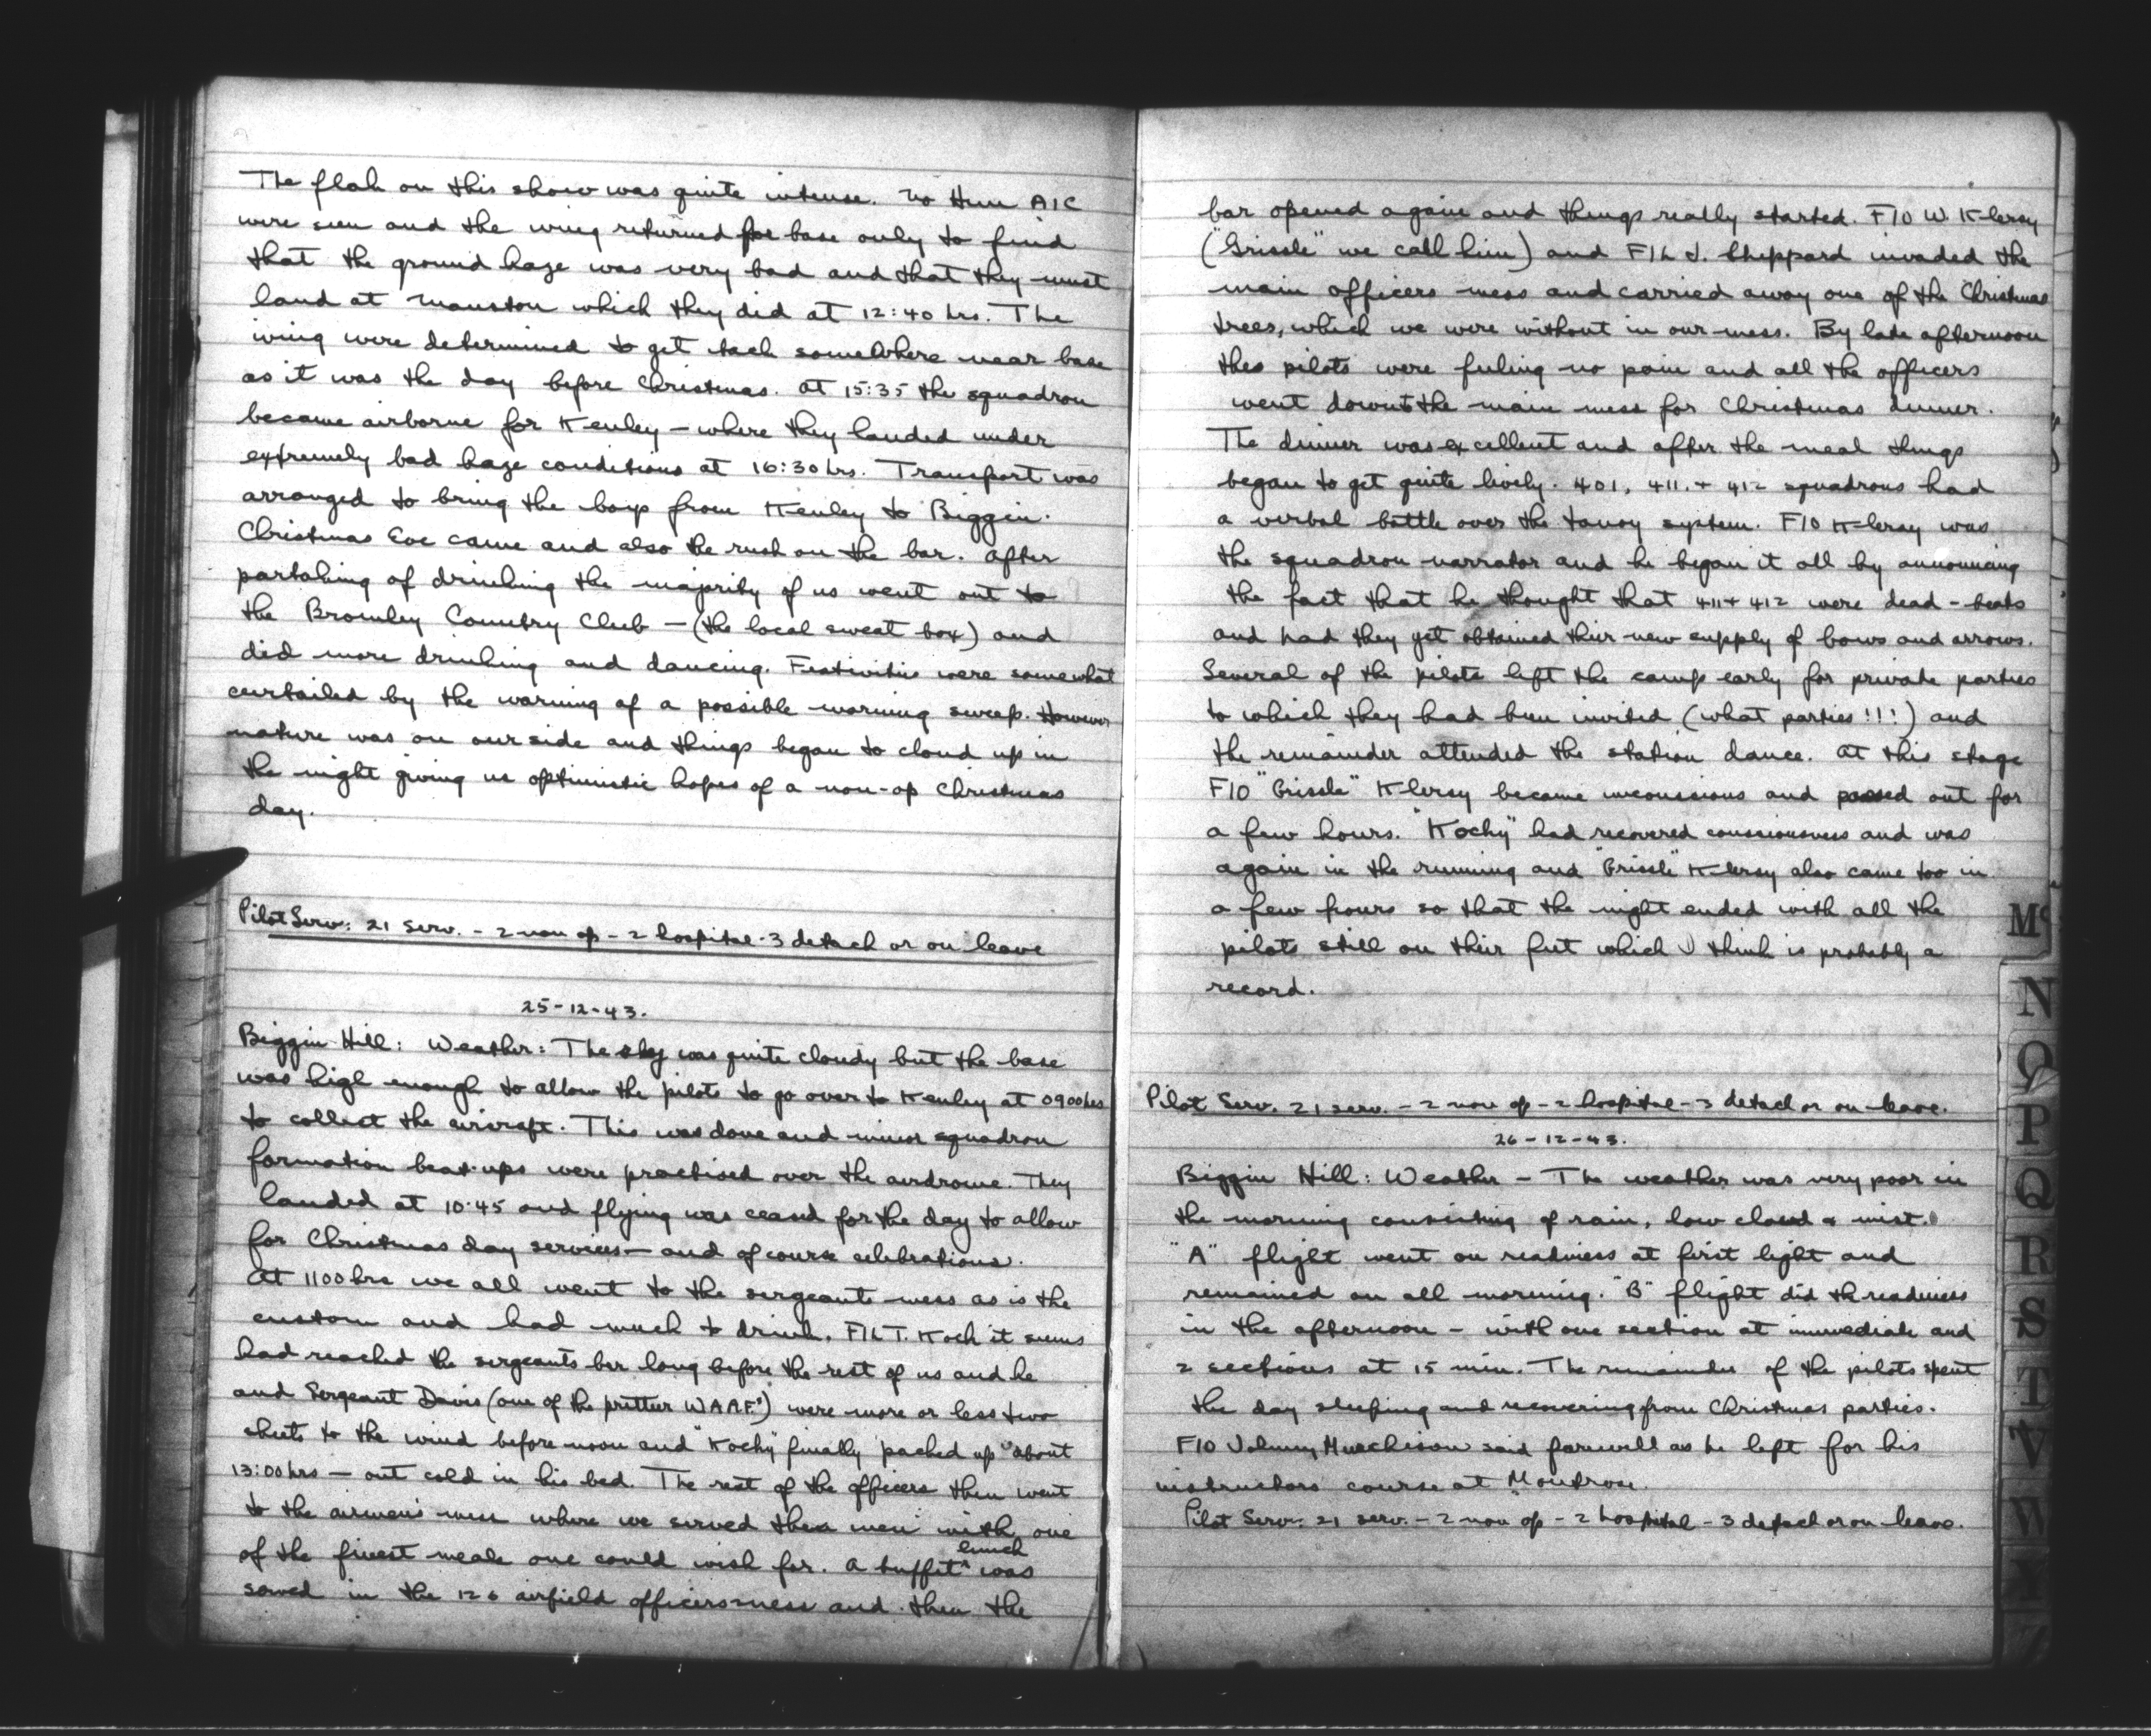 The flak on this show was quite intense. No Hun A/C
were seen and the wing returned for base only to find
that the ground haze was very bad and that they must
land at Manston which they did at 12:40 hrs. The
wing were determined to get back somewhere near base
as it was the day before Christmas. At 15:35 the squadron
became airborne for Kenley – where they landed under
extremely bad haze conditions at 16:30 hrs. Transport was
arranged to bring the boys from Kenley to Biggin.
Christmas Eve came and also the rush on the bar. After
partaking of drinking the majority of us went out to
the Bromley Country Club – (the local sweat box) and
did more drinking and dancing. Festivities were somewhat
curtailed by the warning of a possible morning sweep. However
nature was on our side and things began to cloud up in
the night giving us optimistic hopes of a non-op Christmas
day.
Pilot Serv: 21 serv. – 2 non op – 2 hospital – 3 detach or on leave
25-12-43.
Biggin Hill: Weather: The sky was quite cloudy but the base
was high enough to allow the pilots to go over to Kenley at 0900 hrs
to collect the aircraft. This was done and minor squadron
formation beat-ups were practised over the airdrome. They
landed at 10:45 and flying was ceased for the day to allow
for Christmas day services – and of course celebrations.
At 1100 hrs we all went to the sergeants mess as is the
custom and had much to drink. F/L T. Koch it seems
had reached the sergeants bar long before the rest of us and he
and Sergeant Davis (one of the prettier WAAF's) were more or less two
sheets to the wind before noon and "Kochy" finally "packed up" about
13:00 hrs – out cold in his bed. The rest of the officers then went
to the airmen's mess where we served the men with one
of the finest meals one could wish for. A buffit lunch was
served in the 126 airfield officers mess and then the
bar opened again and things really started. F/O W. Klersy
("Grissle" we call him) and F/L J. Sheppard invaded the
main officers mess and carried away one of the Christmas
trees, which we were without in our mess. By late afternoon
the pilots were feeling no pain and all the officers
went down to the main mess for Christmas dinner.
The dinner was excellent and after the meal things
began to get quite lively. 401, 411, + 412 squadrons had
a verbal battle over the tanoy system. F/O Klersy was
the squadron narrator and he began it all by announcing
the fact that he thought that 411 + 412 were dead-beats
and had they yet obtained their new supply of bows and arrows.
Several of the pilots left the camp early for private parties
to which they had been invited (what parties!!!) and
the remainder attended the station dance. At this stage
F/O "Grissle" Klersy became unconssious and passed out for
a few hours. "Kochy" had recovered consciousness and was
again in the running and "Grissle" Klersy also came too in
a few hours so that the night ended with all the
pilots still on their feet which I think is probably a
record.
Pilot Serv. 21 serv. – 2 non op – 2 hospital – 3 detach or on leave.
26-12-43.
Biggin Hill: Weather – The weather was very poor in
the morning consisting of rain, low cloud & mist.
"A" flight went on readiness at first light and
remained on all morning. "B" flight did the readiness
in the afternoon – with one section at immediate and
2 sections at 15 min. The remainder of the pilots spent
the day sleeping and recovering from Christmas parties.
F/O Johnny Murchison said farewell as he left for his
instructors course at Montrose.
Pilot Serv: 21 serv. – 2 non op – 2 hospital – 3 detach or on leave.
Mc
N
O
P
Q
R
S
T
V
W
X
Z